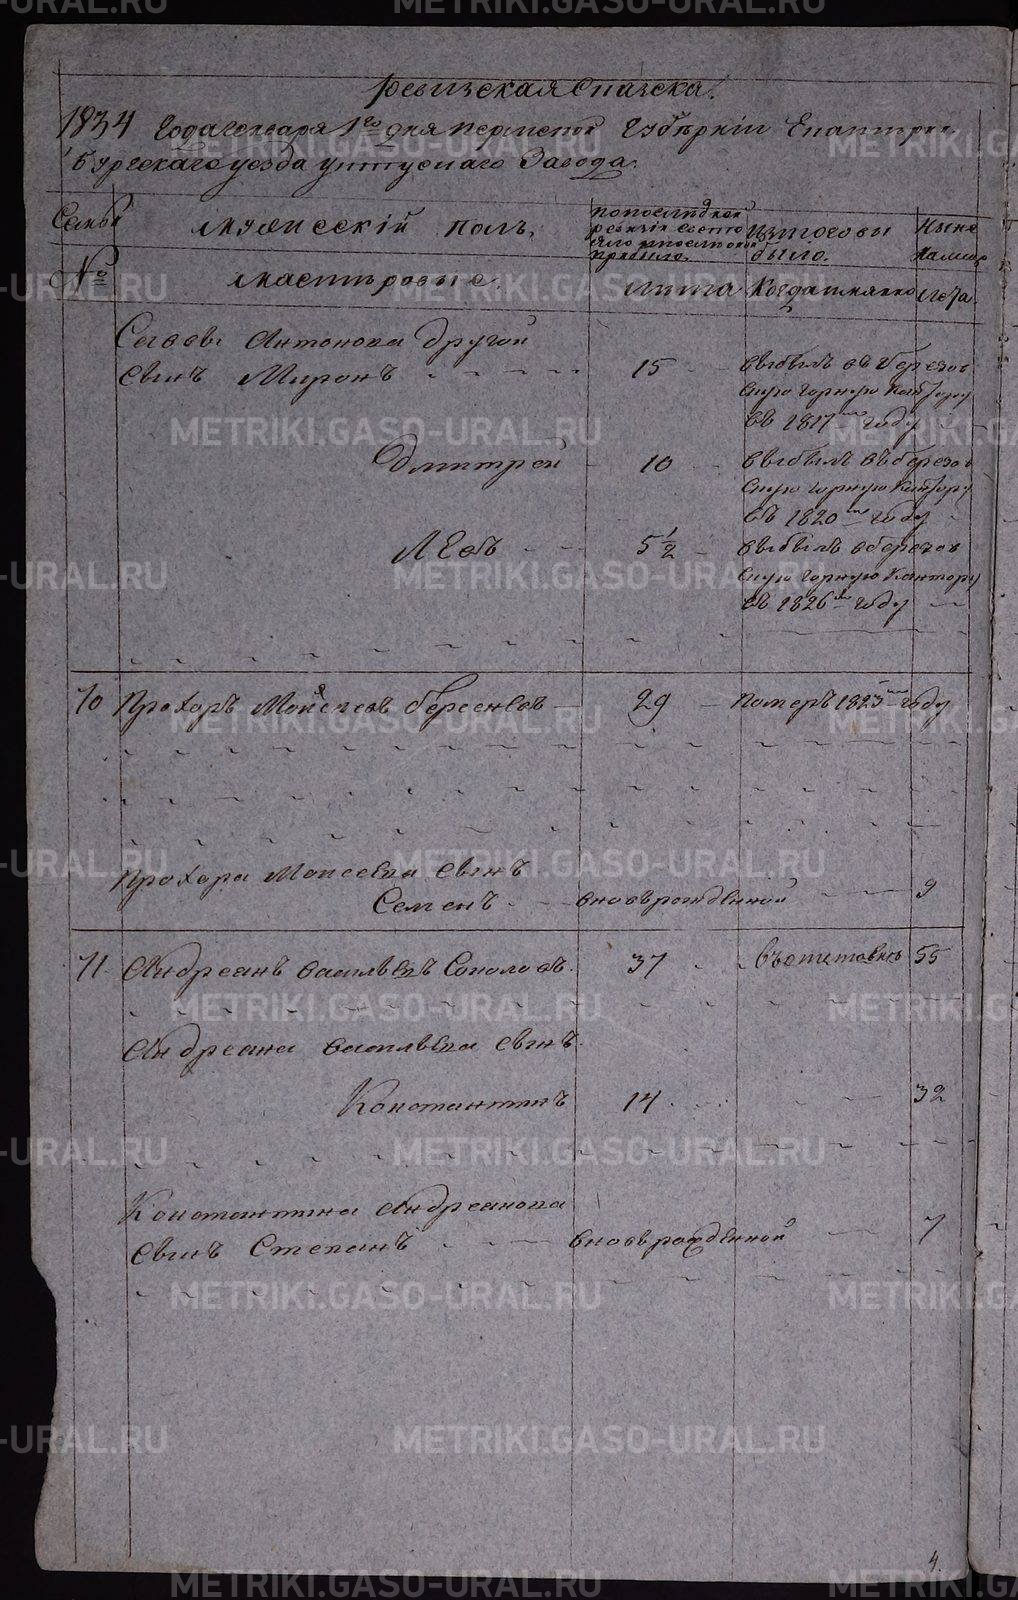 Ревизская Сказка.
1834 Года генваря 1го дня пермской Губернии Екатерин
бургскаго уезда уткускаго Завода.
Семьи
№
мужескій полъ,
мастѣровые.
попоследней
ревизіи состо
яло и после оной
прибыло.
лета
Изтого выбыло.
Когда именно
Ныне
налицо
лета
Савы Антонова другой
сынъ Миронъ 15 выбылъ въ березов
скую горную контору
въ 1817мъ году
Дмитрей 10 выбылъ въ березов
скую горную контору
въ 1820мъ году
Левъ 5 1/2 выбылъ в березов
скую горную контору
въ 1826м году
70 Прохоръ Моисеевъ берсеневъ 29 померъ 1825мъ году
Прохора Моисеева сынъ
Семенъ вновьрожденной 9
71 Андреанъ васильевъ Соколовъ. 37 въотставке 55
Андреана васильева сынъ.
Константинъ 14 32
Константина Андреанова
сынъ Степанъ вновьрожденной 7
4.
METRIKI.GASO-URAL.RU